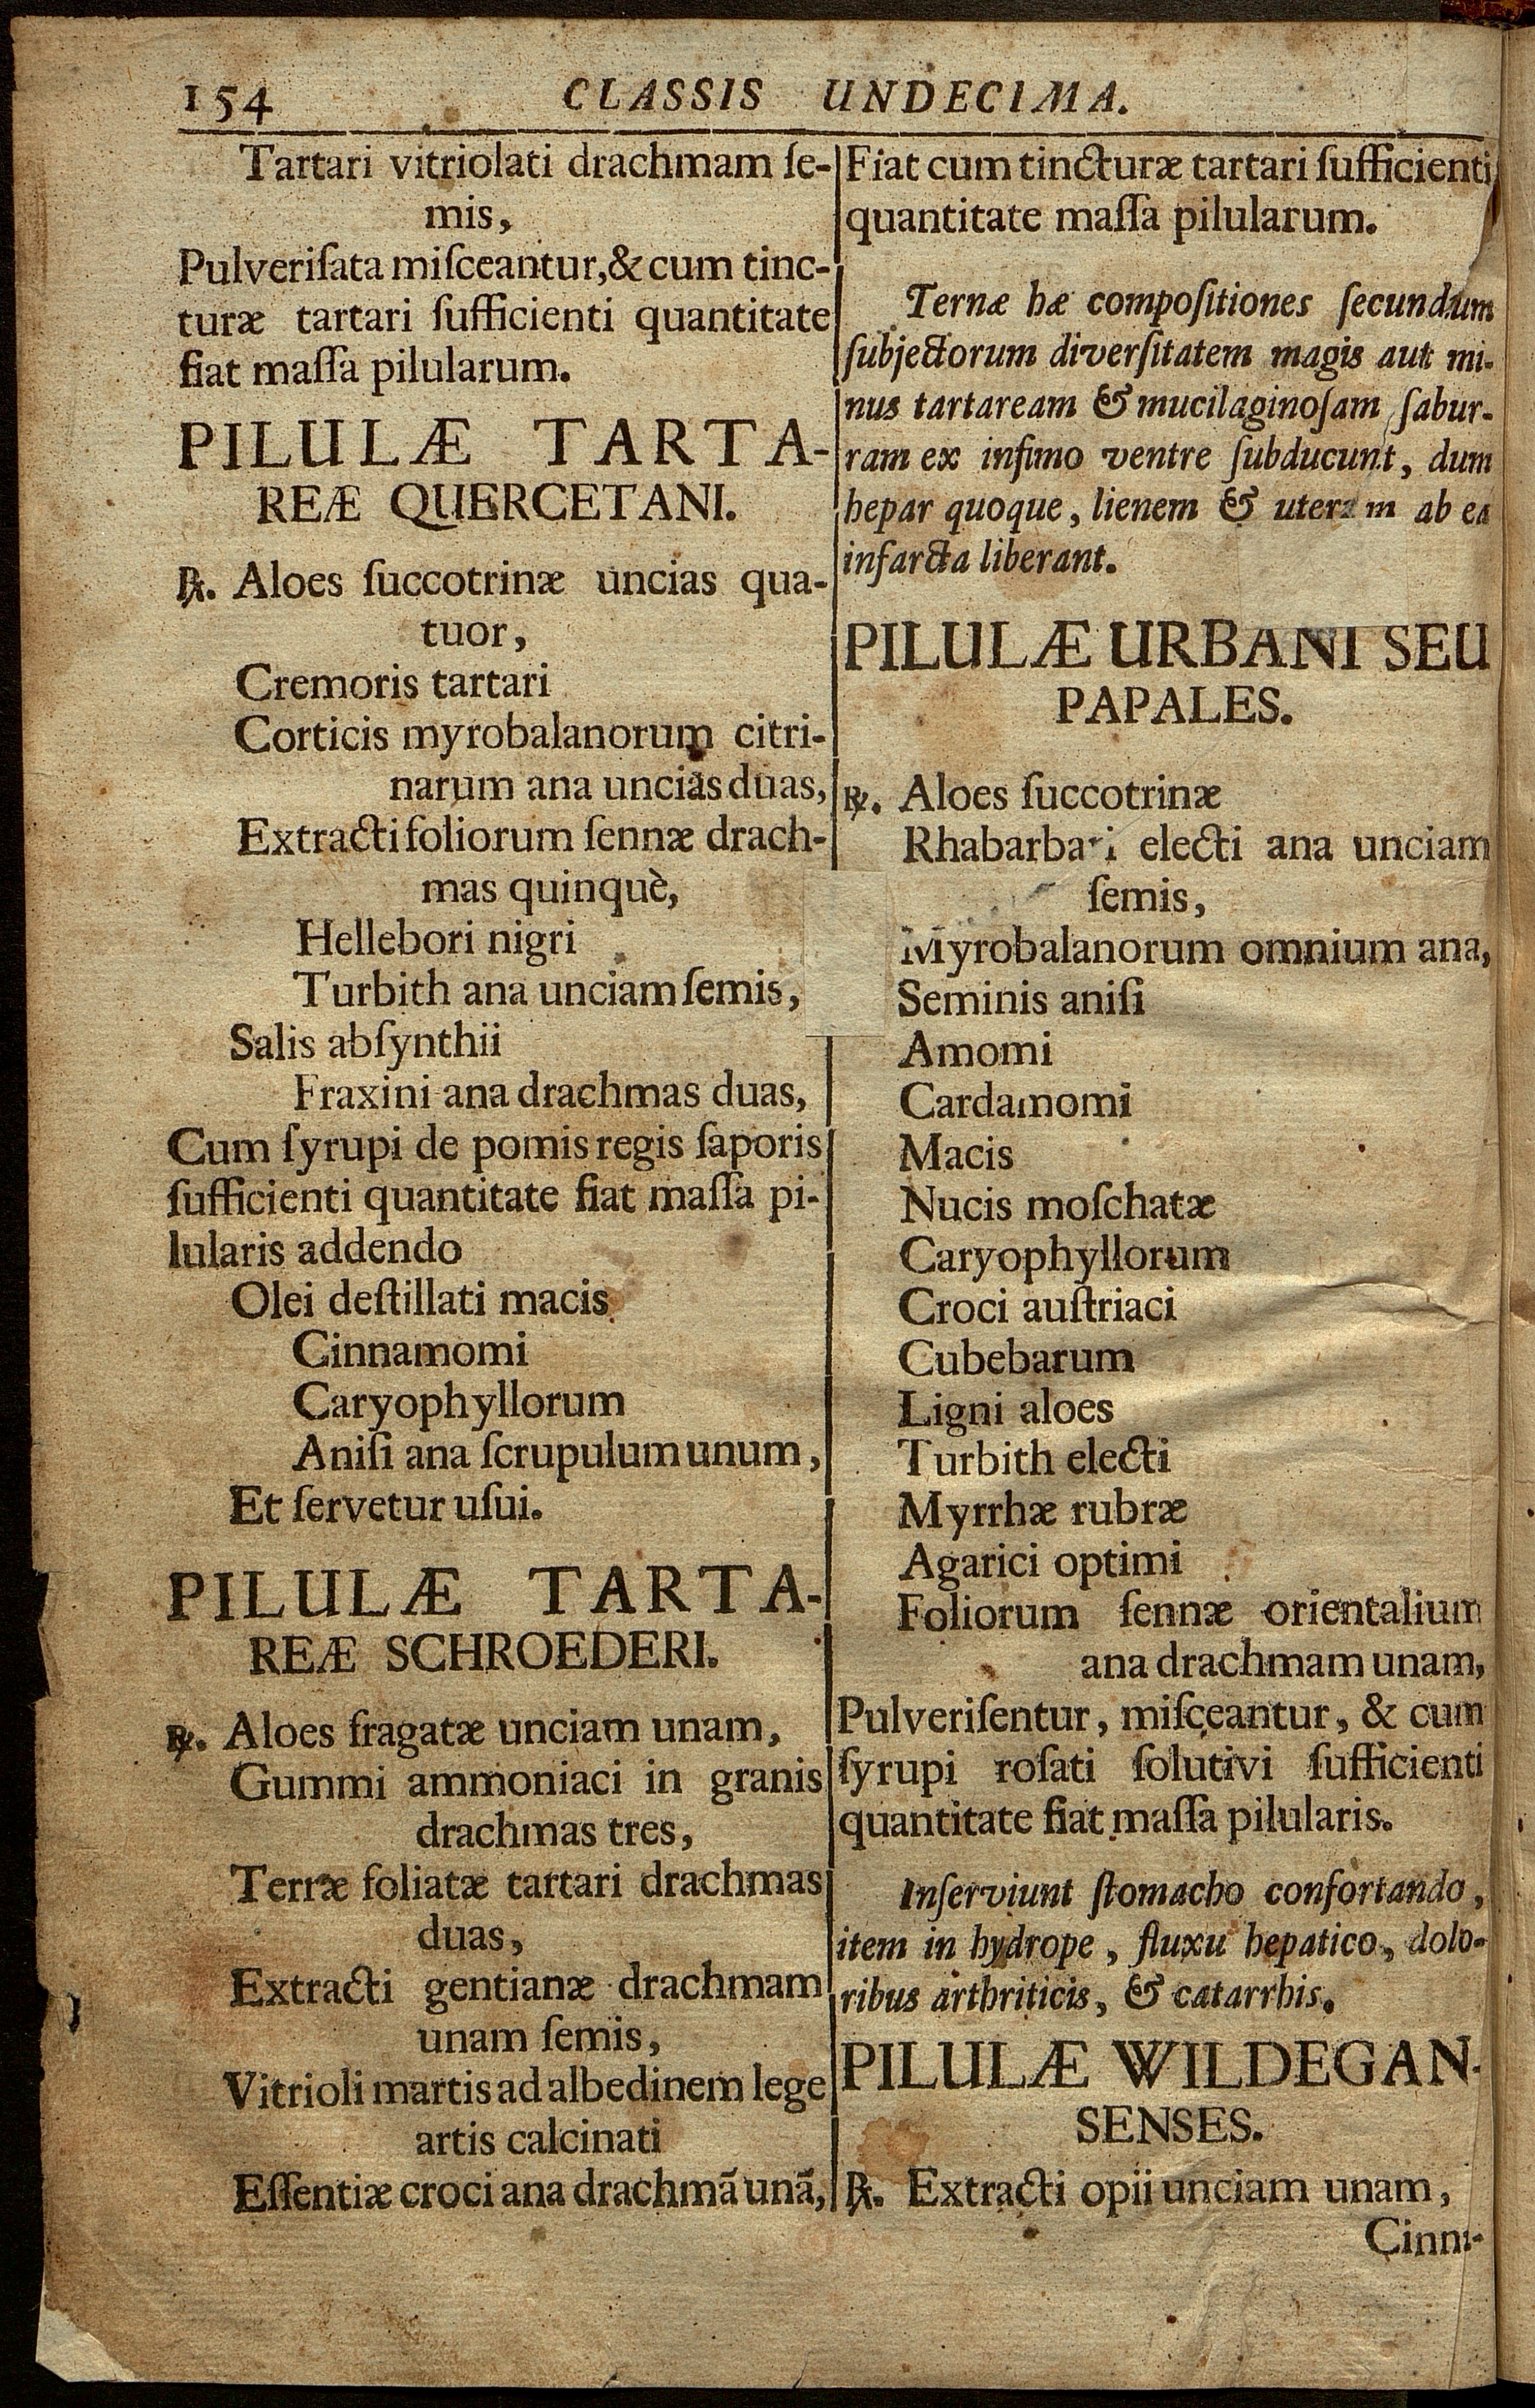 154 CLASSIS UNDECIMA.
Tartari vitriolati drachmam ſe-
mis,
Pulveriſata miſceantur, & cum tinc-
turæ tartari ſufficienti quantitate
fiat maſſa pilularum.
PILULÆ TARTA-
REÆ QUERCETANI.
℞. Aloes ſuccotrinæ uncias qua-
tuor,
Cremoris tartari
Corticis myrobalanorum citri-
narum ana uncias duas,
Extracti foliorum ſennæ drach-
mas quinquè,
Hellebori nigri
Turbith ana unciam ſemis,
Salis abſynthii
Fraxini ana drachmas duas,
Cum ſyrupi de pomis regis ſaporis
ſufficienti quantitate fiat maſſa pi-
lularis addendo
Olei deſtillati macis
Cinnamomi
Caryophyllorum
Aniſi ana ſcrupulum unum,
Et ſervetur uſui.
PILULÆ TARTA-
REÆ SCHROEDERI.
℞. Aloes fragatæ unciam unam,
Gummi ammoniaci in granis
drachmas tres,
Terræ foliatæ tartari drachmas
duas,
Extracti gentianæ drachmam
unam ſemis,
Vitrioli martis ad albedinem lege
artis calcinati
Eſſentiæ croci ana drachmã unã,
Fiat cum tincturæ tartari ſufficienti
quantitate maſſa pilularum.
Ternæ hæ compoſitiones ſecundum
ſubjectorum diverſitatem magis aut mi-
nus tartaream & mucilaginoſam ſabur-
ram ex infimo ventre ſubducunt, dum
hepar quoque, lienem & uterum ab ea
infarcta liberant.
PILULÆ URBANI SEU
PAPALES.
℞. Aloes ſuccotrinæ
Rhabarbari electi ana unciam
ſemis,
Myrobalanorum omnium ana,
Seminis aniſi
Amomi
Cardamomi
Macis
Nucis moſchatæ
Caryophyllorum
Croci auſtriaci
Cubebarum
Ligni aloes
Turbith electi
Myrrhæ rubræ
Agarici optimi
Foliorum ſennæ orientalium
ana drachmam unam,
Pulveriſentur, miſceantur, & cum
ſyrupi roſati ſolutivi ſufficienti
quantitate fiat maſſa pilularis.
Inſerviunt ſtomacho confortando,
item in hydrope, fluxu hepatico, dolo-
ribus arthriticis, & catarrhis.
PILULÆ WILDEGAN-
SENSES.
℞. Extracti opii unciam unam,
Cinni-